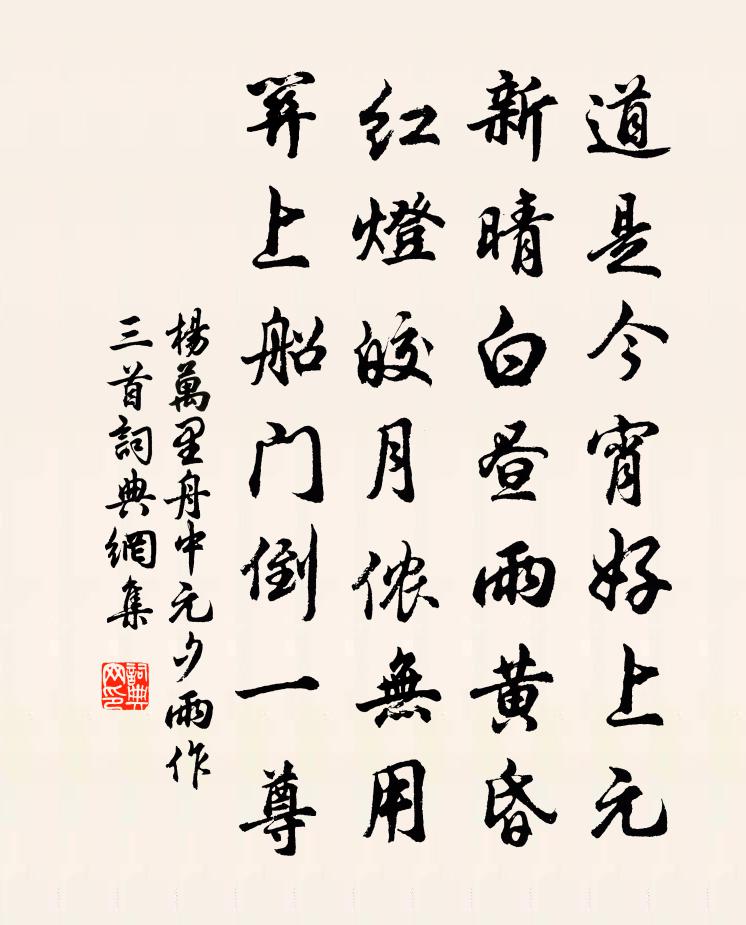 道是今宵好上元
新晴白昼雨黄昏
红燈皎月侬無用
关上船门倒一尊
楊萬里舟中元夕雨作
三首詞典網集
詞典网印